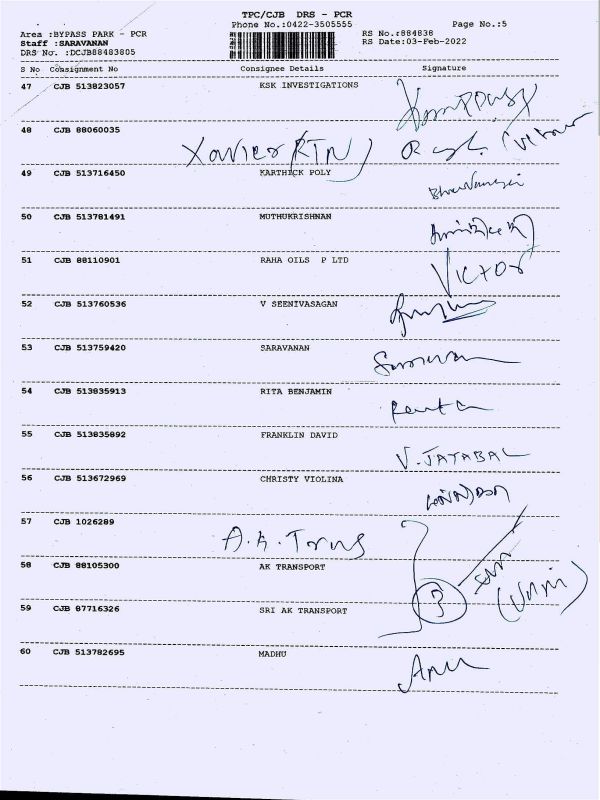 TPC/CJB DRS - PCR
Phone No.:0422-3505555
Page No.:5
Area :BYPASS PARK - PCR
RS No.:884838
Staff :SARAVANAN
RS Date:03-Feb-2022
DRS No. :DCJB88483805
S No Consignment No Consignee Details Signature
47 CJB 513823057 KSK INVESTIGATIONS
48 CJB 88060035
Xavier (RTN)
49 CJB 513716450 KARTHICK POLY
50 CJB 513781491 MUTHUKRISHNAN
51 CJB 88110901 RAHA OILS P LTD VICTOR
52 CJB 513760536 V SEENIVASAGAN
53 CJB 513759420 SARAVANAN
54 CJB 513835913 RITA BENJAMIN
55 CJB 513835892 FRANKLIN DAVID V. JAYABAL
56 CJB 513672969 CHRISTY VIOLINA
57 CJB 1026289 A.K. Trns
58 CJB 88105300 AK TRANSPORT
59 CJB 87716326 SRI AK TRANSPORT 3
60 CJB 513782695 MADHU